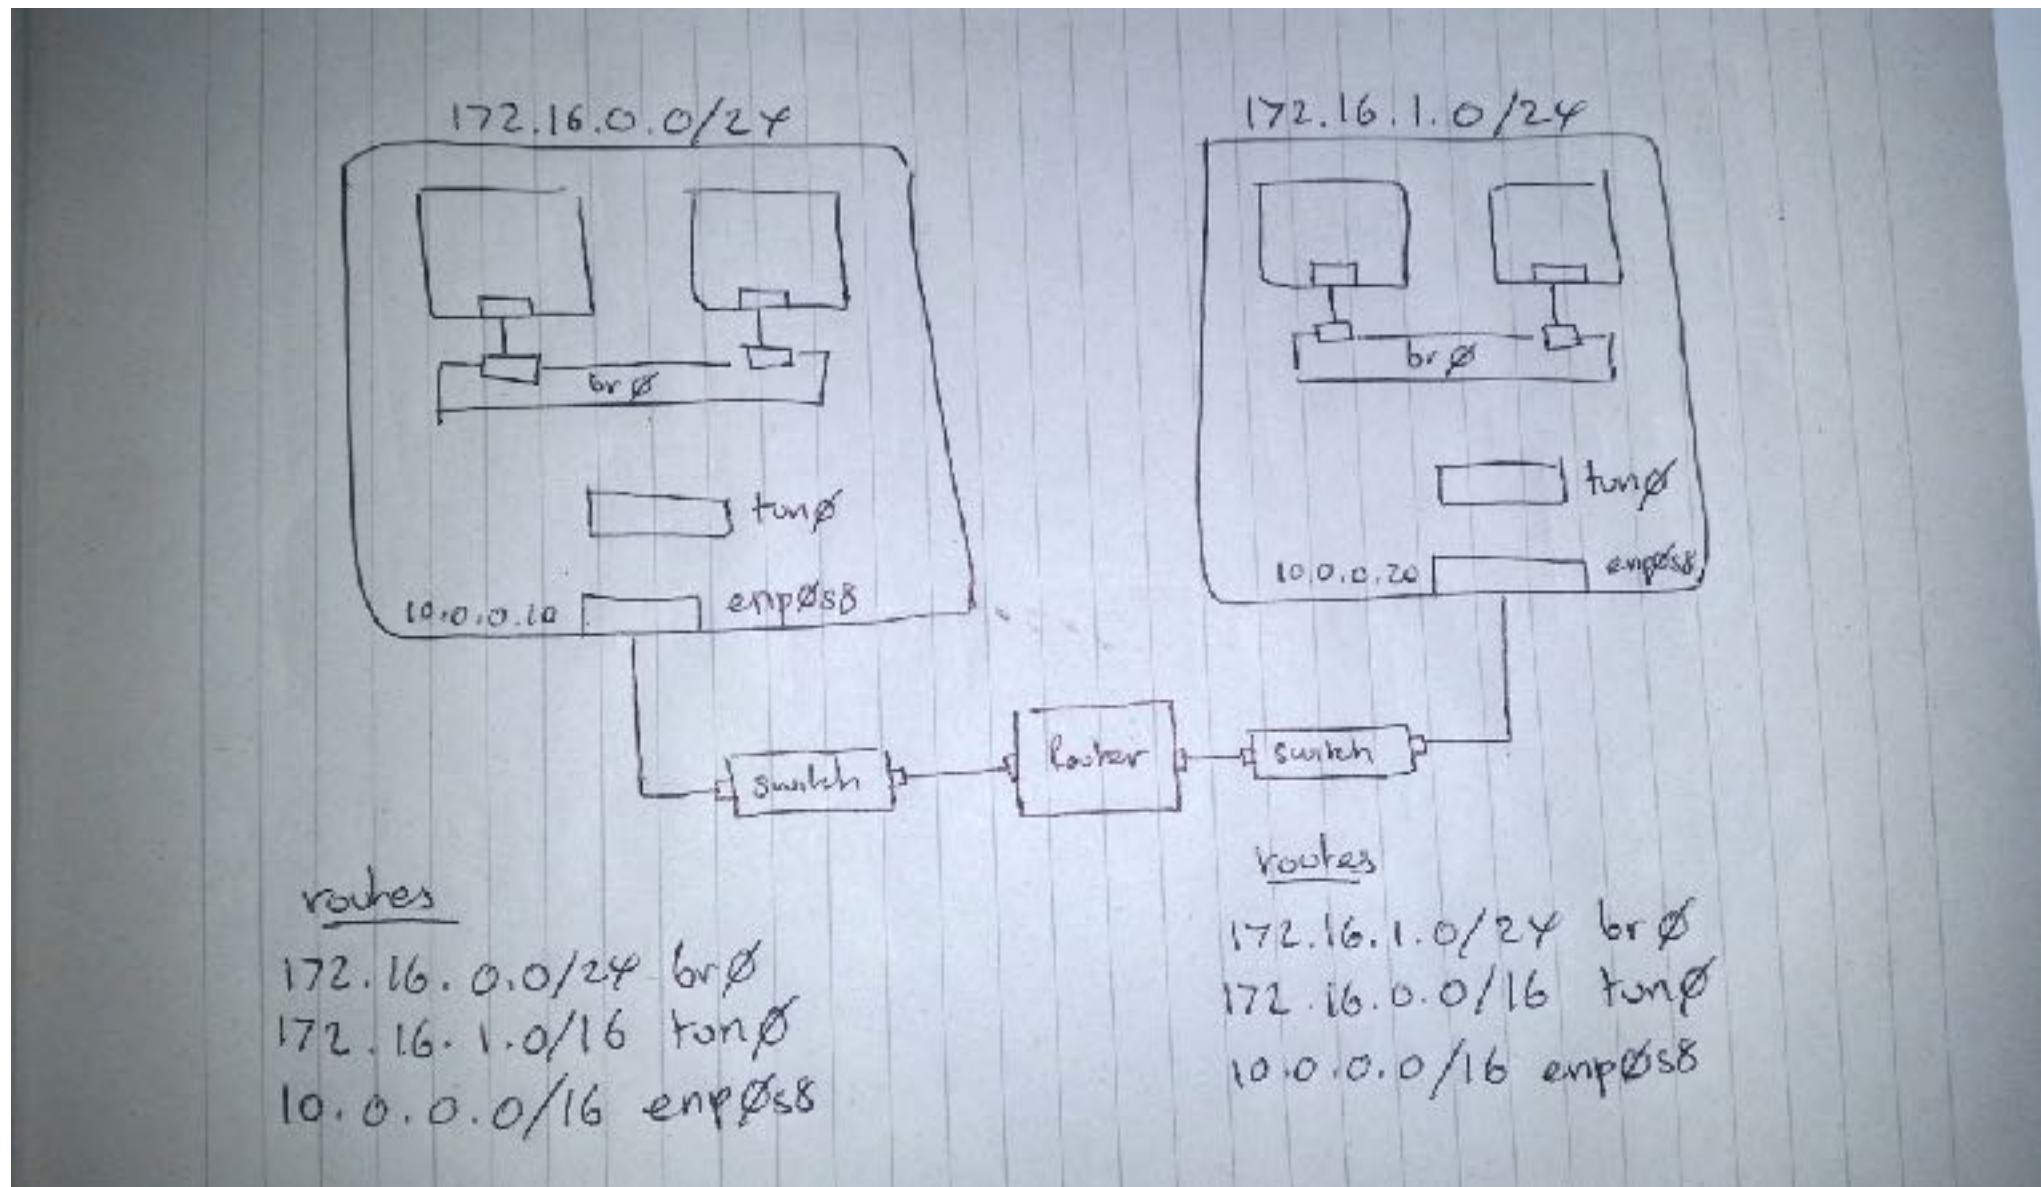 172.16.0.0/24
br0
tun0
10.0.0.10 enp0s8
172.16.1.0/24
br0
tun0
10.0.0.20 enp0s8
switch
Router
switch
routes
172.16.0.0/24 br0
172.16.1.0/16 tun0
10.0.0.0/16 enp0s8
routes
172.16.1.0/24 br0
172.16.0.0/16 tun0
10.0.0.0/16 enp0s8